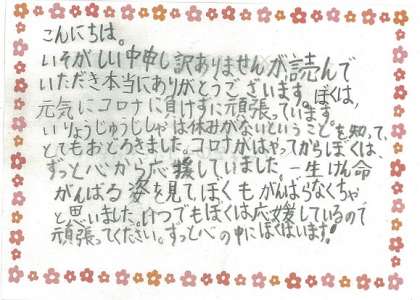 こんにちは。
いそがしい中申し訳ありませんが読んで
いただき本当にありがとうございます。ぼくは、
元気にコロナに負けずに頑張っています。
いりょうじゅうじしゃは休みがないということを知って、
とてもおどろきました。コロナがはやってからぼくは、
ずっと心から応援していました。一生けん命
がんばる姿を見てぼくもがんばらなくちゃ
と思いました。いつでもぼくは応援しているので
頑張ってください。ずっと心の中にぼくはいます!